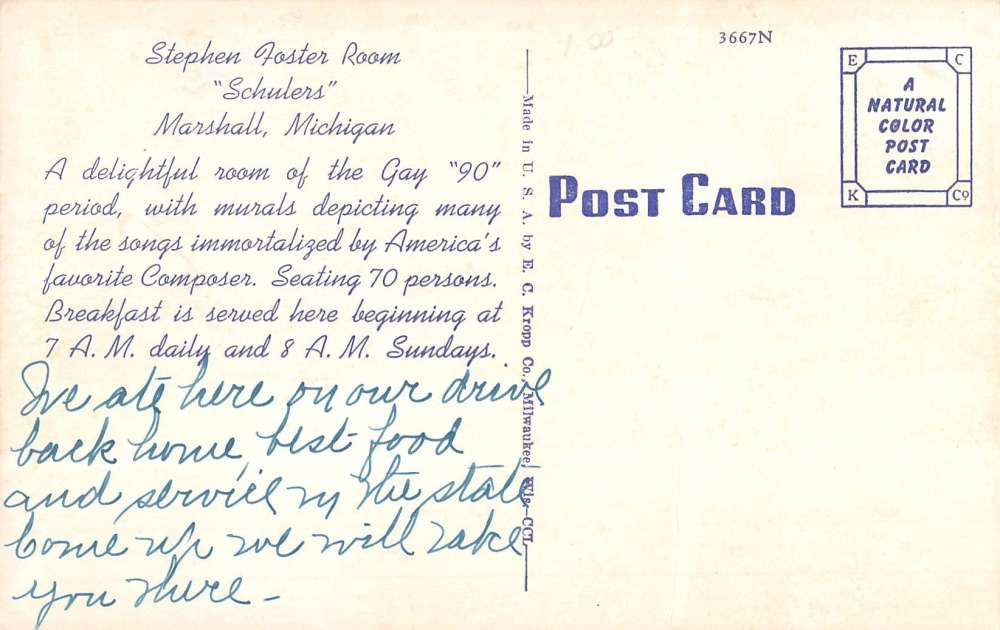 Stephen Foster Room
"Schulers"
Marshall, Michigan
A delightful room of the Gay "90"
period, with murals depicting many
of the songs immortalized by America's
favorite Composer. Seating 70 persons.
Breakfast is served here beginning at
7 A. M. daily and 8 A. M. Sundays.
We ate here on our drive
back home, best food
and service in the state
Come up we will take
you there –
Made in U. S. A. by E. C. Kropp Co., Milwaukee, Wis.—CCL
3667N
POST CARD
E C
A
NATURAL
COLOR
POST
CARD
K Co